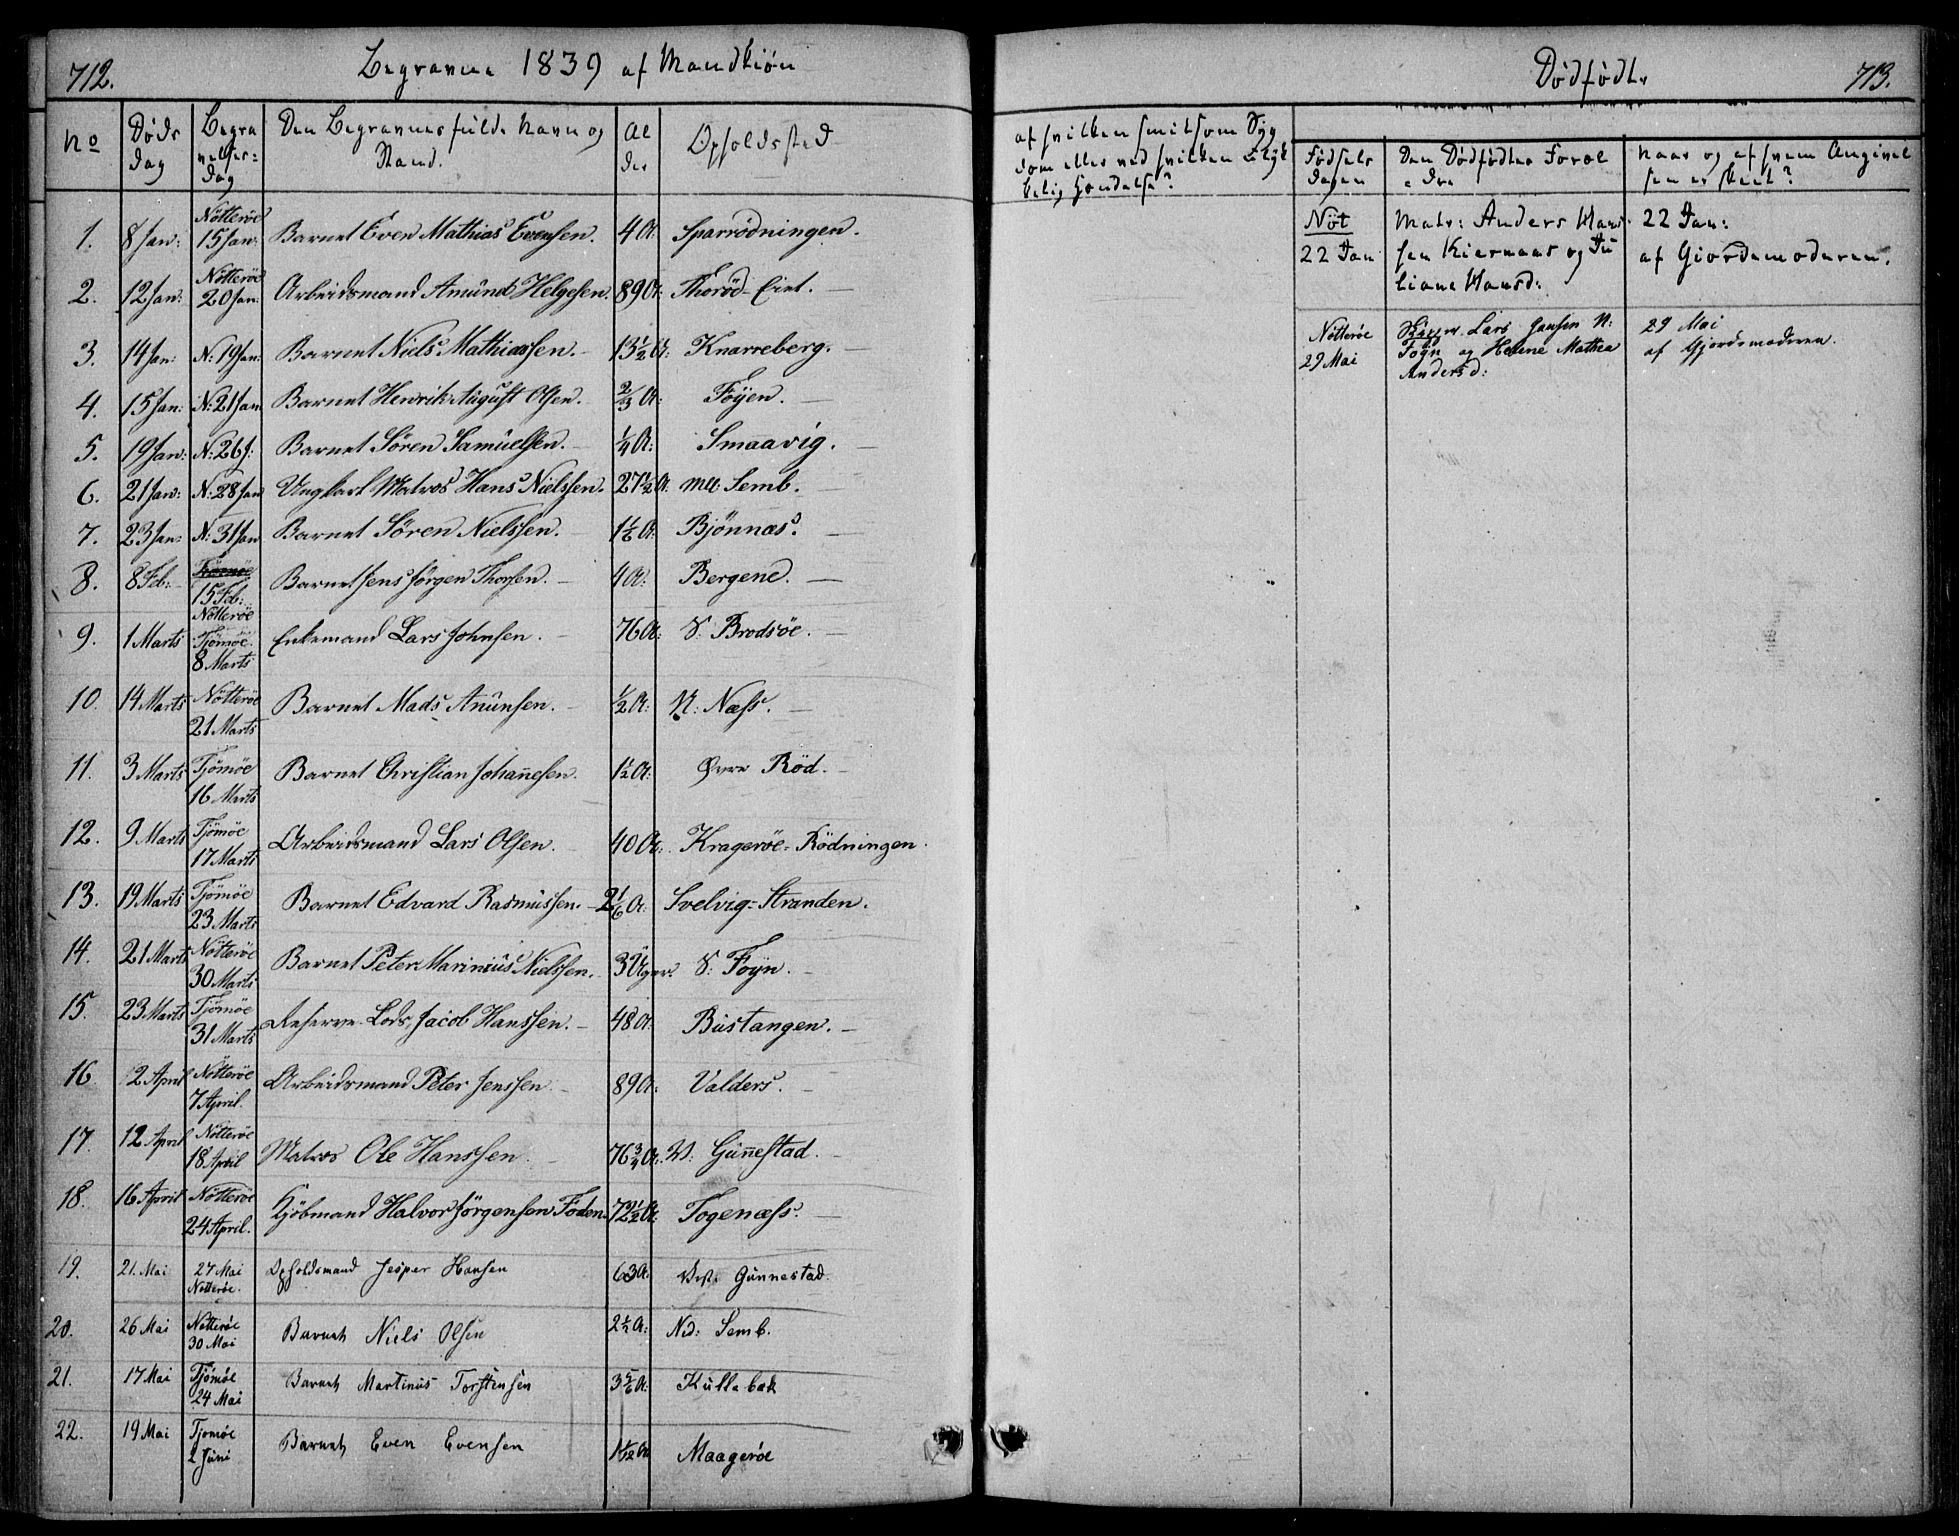 712.
Begravne 1839 af Mandkiøn
No
Døds Dag
Begravelses= Dag
Den Begravnes fulde Navn og Stand.
Alder
Opholdsted
1. 8 Jan: Nötteröe 15 Jan: Barnet Even Mathias Evensen. 4 A. Sparrödningen.
2. 12 Jan: Nötteröe 20 Jan: Arbeidsmand Amund Helgesen. 89 A: Thoröd-Eiet.
3. 14 Jan: N: 19 Jan: Barnet Niels Mathiassen. 13 1/2 A: Knarreberg.
4. 15 Jan: N: 21 Jan Barnet Henrik August Olsen. 2/3 A: Föyen.
5. 19 Jan: N: 26 J: Barnet Sören Samuelsen. 1/4 A: Smaavig.
6. 21 Jan: N: 28 Jan Ungkarl Matros Hans Nielssen. 27 1/2 A. Mell: Semb.
7. 23 Jan: N: 31 Jan Barnet Sören Nielssen. 1 1/6 A: Bjönnæs.
8. 8 Feb: 15 Feb: Nötteröe Barnet Jens Jörgen Thorsen. 4 A: Bergene.
9. 1 Marts Tjömöe 8 Marts Enkemand Lars Johnsen. 76 A: S. Brodsöe.
10. 14 Marts Nötteröe 21 Marts Barnet Mads Anunsen. 1/2 A: N: Næss.
11. 3 Marts Tjömöe 16 Marts Barnet Christian Johannesen. 1 1/2 A: Øvre Röd.
12. 9 Marts Tjömöe 17 Marts Arbeidsmand Lars Olsen. 40 A: Krageröe-Rödningen.
13. 19 Marts Tjömöe 23 Marts Barnet Edvard Rasmussen. 2 1/6 A: Svelvig-Stranden.
14. 21 Marts Nötteröe 30 Marts Barnet Peter Marinius Nielssen. 3 Uger. S: Föyn.
15. 23 Marts Tjömöe 31 Marts Reserve-Lods Jacob Hanssen. 48 A: Bustangen.
16 2 April Nötteröe 7 April. Arbeidsmand Peter Jenssen. 89 A: Valders.
17. 12 April Nötteröe 18 April Matros Ole Hanssen. 76 3/4 A. V: Gunnestad.
18. 16 April Nötteröe 24 April. Kjöbmand Halvor Jörgensen Föden. 72 1/2 A: Togenæss.
19. 21. Mai 27 Mai Nötteröe. Opholdsmand Jesper Hansen 63 A: Vest: Gunnestad.
20. 26 Mai Nötteröe 30 Mai Barnet Niels Olsen 2 1/2 A: Ned: Semb.
21. 17 Mai Tjömöe 24 Mai Barnet Martinus Torstensen 3 5/6 A: Kullebak
22. 19 Mai Tjomöe 2 Juni Barnet Even Evensen 1 1/12 A Maageröe
Dødfødte
713.
af hvilken smitsom Sygdom eller ved hvilken ulykkelig Hændelse?
Fødsels dagen
Den Dødfødtes Forældre
Naar og af hvem Angivelsen er skeet?
Nöt 22 Jan Matr: Anders Hanssen Kiernaas og Juliane Hansd: 22 Jan: af Giordemoderen.
Nötteröe 29 Mai Lars Hansen N: Föyn og Helene Mathea Andersd: 29 Mai af Gjordemoderen.